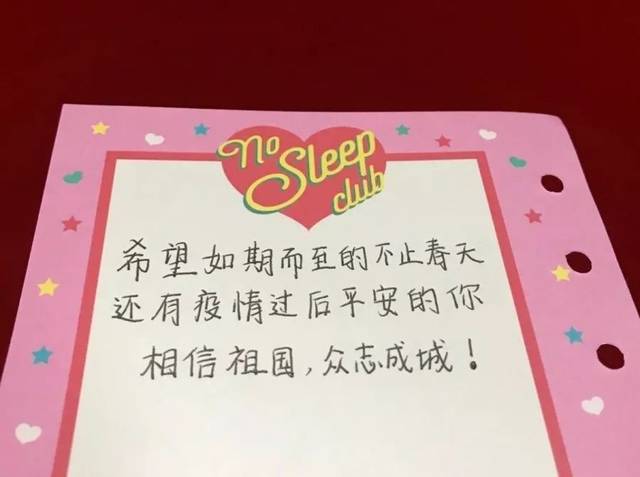 No
Sleep
club
希望如期而至的不止春天
还有疫情过后平安的你
相信祖国,众志成城!